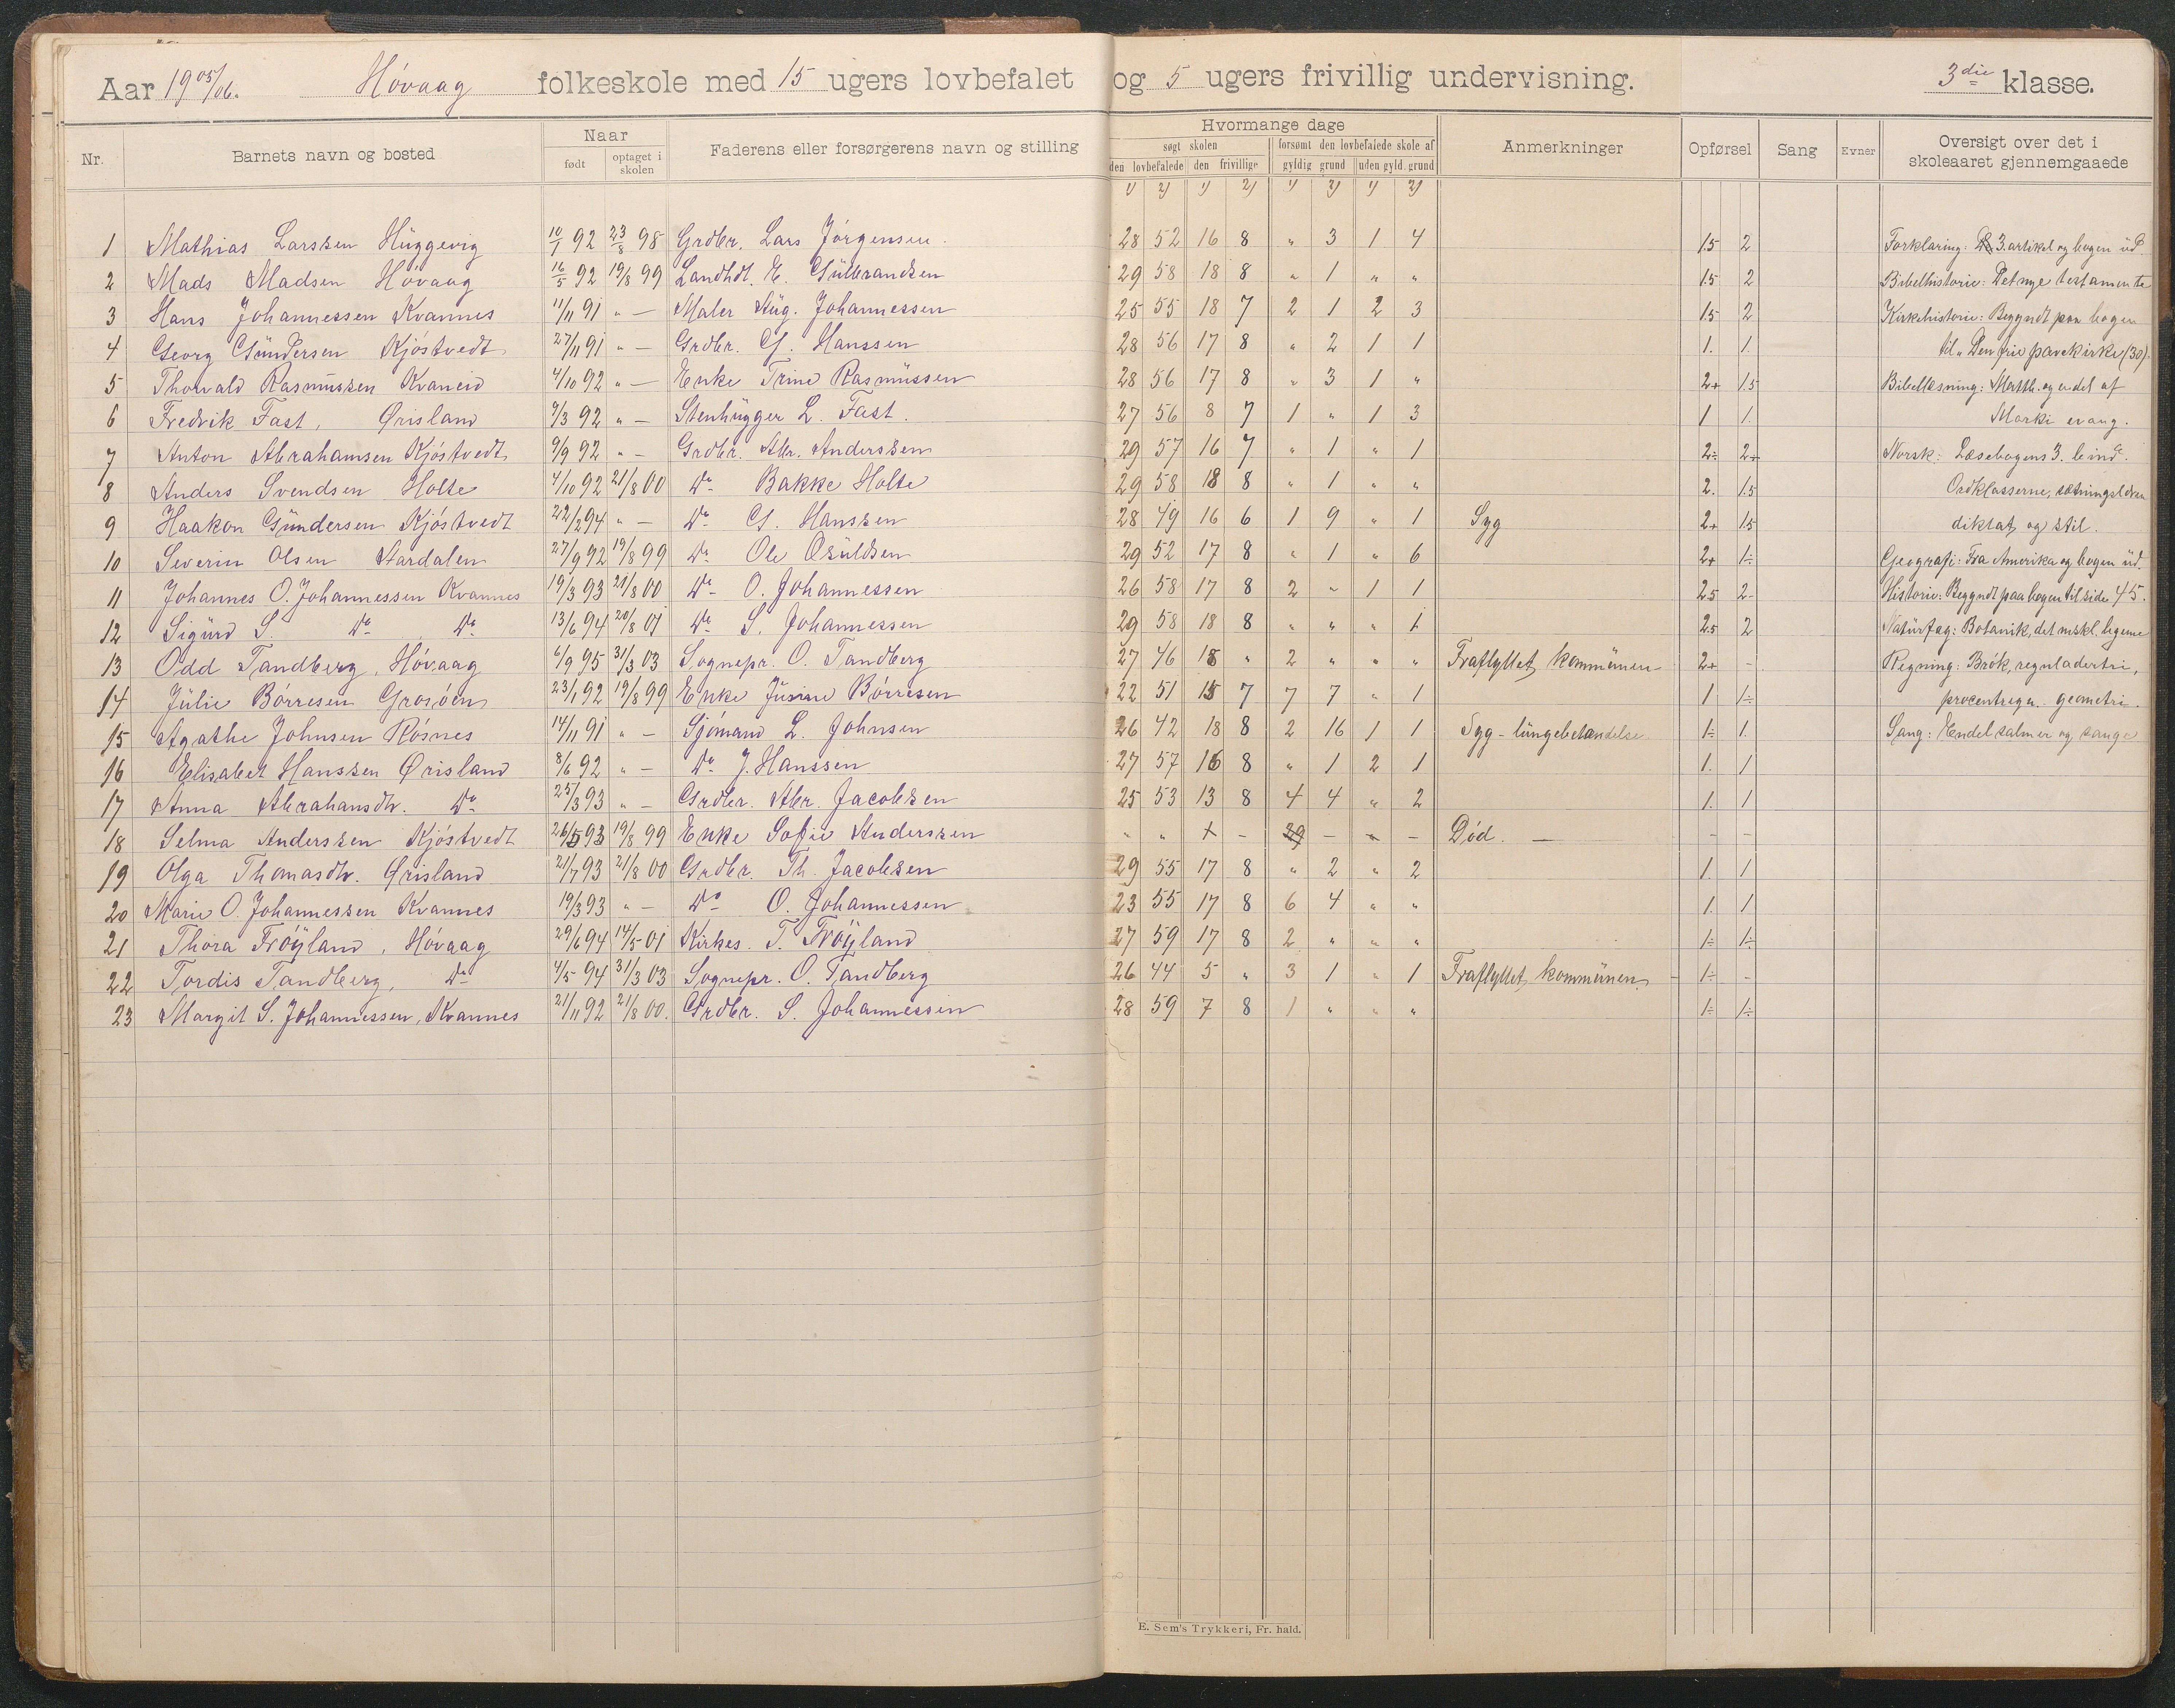 Aar 1905/06. Høvaag folkeskole med 15 ugers lovbefalet og 5 ugers frivillig undervisning. 3die klasse.
Nr. Barnets navn og bosted Naar født optaget i skolen Faderens eller forsørgerens navn og stilling Hvormange dage søgt skolen den lovbefalede den frivillige forsømt den lovbefalede skole af gyldig grund uden gyld. grund Anmerkninger Opførsel Sang Evner Oversigt over det i skoleaaret gjennemgaaede
1) 2) 1) 2) 1) 2) 1) 2)
1 Mathias Larssen Hüggevig 10/1 92 23/8 98 Grdbr. Lars Jørgensen. 28 52 16 8 " 3 1 4 1.5 2 Forklaring: 3. artikel og bogen üd.
2 Mads Madsen Høvaag 16/5 92 19/8 99 Landhdl. E. Gülbrandsen 29 58 18 8 " 1 " " 1.5 2 Bibelhistorie: Det nye testamente
3 Hans Johannessen Kvannes 11/11 91 " — Maler Aüg. Johannessen 25 55 18 7 2 1 2 3 1.5 2 Kirkehistorie: Begyndt paa bogen
4 Georg Gündersen Kjøstvedt 27/11 91 " — Grdbr. G. Hanssen 28 56 17 8 " 2 1 1 1. 1. til "Den frie pavekirke (30).
5 Thorvald Rasmüssen Kvaneid 4/10 92 " — Enke Trine Rasmüssen 28 56 17 8 " 3 1 " 2+ 1.5 Bibellæsning: Matth. og endel af
6 Fredrik Fast, Ørisland 9/3 92 " — Stenhügger L. Fast. 27 56 8 7 1 " 1 3 1 1. Marki evang.
7 Anton Abrahamsen Kjøstvedt 9/9 92 " — Grdbr. Abr. Anderssen 29 57 16 7 " 1 " 1 2÷ 2+ Norsk: Læsebogens 3. bind.
8 Anders Svendsen Holte 4/10 92 21/8 00 Do Bakke Holte 29 58 18 8 " 1 " " 2. 1.5 Ordklasserne, sætningslære
9 Haakon Gündersen Kjøstvedt 22/2 94 " — Do G. Hanssen 28 49 16 6 1 9 " 1 Syg 2+ 1.5 diktat og stil.
10 Severin Olsen Stardalen 27/9 92 19/8 99 Do Ole Osüldsen 29 52 17 8 " 1 " 6 2+ 1÷ Geografi: Fra Amerika og bogen üd.
11 Johannes O. Johannessen Kvannes 19/3 93 21/8 00 Do O. Johannessen 26 58 17 8 2 " 1 1 2.5 2 Historie: Begyndt paa bogen til side 45.
12 Sigürd S. Do Do 13/6 94 20/8 01 Do S. Johannessen 29 58 18 8 " " " 1 2.5 2 Natürfag: Botanik, det mskl. legeme
13 Odd Tandberg, Høvaag 6/9 95 31/3 03 Sognepr. O. Tandberg 27 46 18 " 2 " " " Fraflyttet kommünen 2+ - Regning: Brøk, reguladetri,
14 Jülie Børresen Grosøen 23/1 92 19/8 99 Enke Jüsine Børresen 22 51 15 7 7 7 " 1 1 1÷ procentregn. geometri.
15 Agathe Johnsen Røsnes 14/11 91 " — Sjømand L. Johnsen 26 42 18 8 2 16 1 1 Syg - lüngebetændelse. 1÷ 1. Sang: Endel salmer og sange
16 Elisabet Hanssen Ørisland 8/6 92 " — Do J. Hanssen 27 57 16 8 " 1 2 1 1. 1
17 Anna Abrahamsdtr. Do 25/3 93 " — Grdbr. Abr. Jacobsen 25 53 13 8 4 4 " 2 1. 1
18 Selma Anderssen Kjøstvedt 26/5 93 19/8 99 Enke Sofie Anderssen " " † - 29 - " - Død. — - -
19 Olga Thomasdtr. Ørisland 21/7 93 21/8 00 Grdbr. Th. Jacobsen 29 55 17 8 " 2 " 2 1. 1
20 Marie O. Johannessen Kvannes 19/3 93 " — Do O. Johannessen 23 55 17 8 6 4 " " 1. 1
21 Thora Frøÿland, Høvaag 29/6 94 14/5 01 Kirkes. T. Frøÿland 27 59 17 8 2 " " " 1÷ 1÷
22 Tordis Tandberg, Do 4/5 94 31/3 03 Sognepr. O. Tandberg 26 44 5 " 3 1 " 1 Fraflyttet kommünen 1÷ -
23 Margit S. Johannessen, Kvannes 21/11 92 21/8 00. Grdbr. S. Johannessen 28 59 7 8 1 " " " 1÷ 1÷
E. Sem's Trykkeri, Fr. hald.